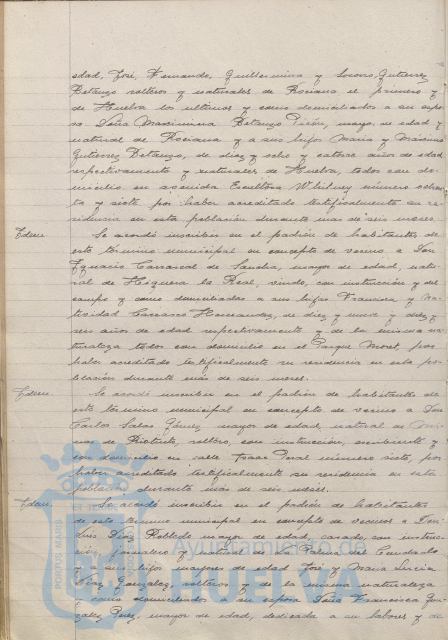 edad, José, Fernando, Guillermina y Socorro Gutierrez
Betanzo solteros y naturales de Rociana el primero y
de Huelva los ultimos y como domiciliados a su espo-
sa Doña Maximina Betanzo, mayor de edad y
natural de Rociana y a sus hijos Maria y Maximo
Gutierrez Betanzo, de diez y ocho y catorce años de edad
respectivamente y naturales de Huelva, todos con do-
micilio en avenida Escultora Whitney número ochen-
ta y siete por haber acreditado testificalmente su re-
sidencia en esta población durante mas de seis meses.
Idem. Se acordó inscribir en el padrón de habitantes de
este término municipal en concepto de vecino a Don
Carrascal de, mayor de edad, natu-
ral de Higuera la Real, viudo, con instrucción y del
campo y como domiciliadas a sus hijas Francisca y Na-
tividad Carrasco Hernandez, de diez y nueve y diez y
seis años de edad respectivamente y de la misma na-
turaleza todos con domicilio en el Parque Moret, por
haber acreditado testificalmente su residencia en esta po-
blación durante más de seis meses.
Idem. Se acordó inscribir en el padrón de habitantes de
este término municipal en concepto de vecino a Don
Carlos Salas Gómez mayor de edad, natural de Mi-
nas de Riotinto, soltero, con instrucción, escribiente y
con domicilio en calle Isaac Peral número siete, por
haber acreditado testificalmente su residencia en esta
población durante más de seis meses.
Idem. Se acordó inscribir en el padrón de habitantes
de este termino municipal en concepto de vecinos a Don
Luis Diaz Robledo mayor de edad, casado, con instruc-
ción, jornalero y natural de La Palma del Condado
y a sus hijos mayores de edad José y Maria Lucia
Diaz Gonzalez, solteros y de la misma naturaleza
y como domiciliados a su esposa Doña Francisca Gon-
zalez Perez, mayor de edad, dedicada a su labores y a
Ayuntamiento de
HUELVA
PORTUS MARIS